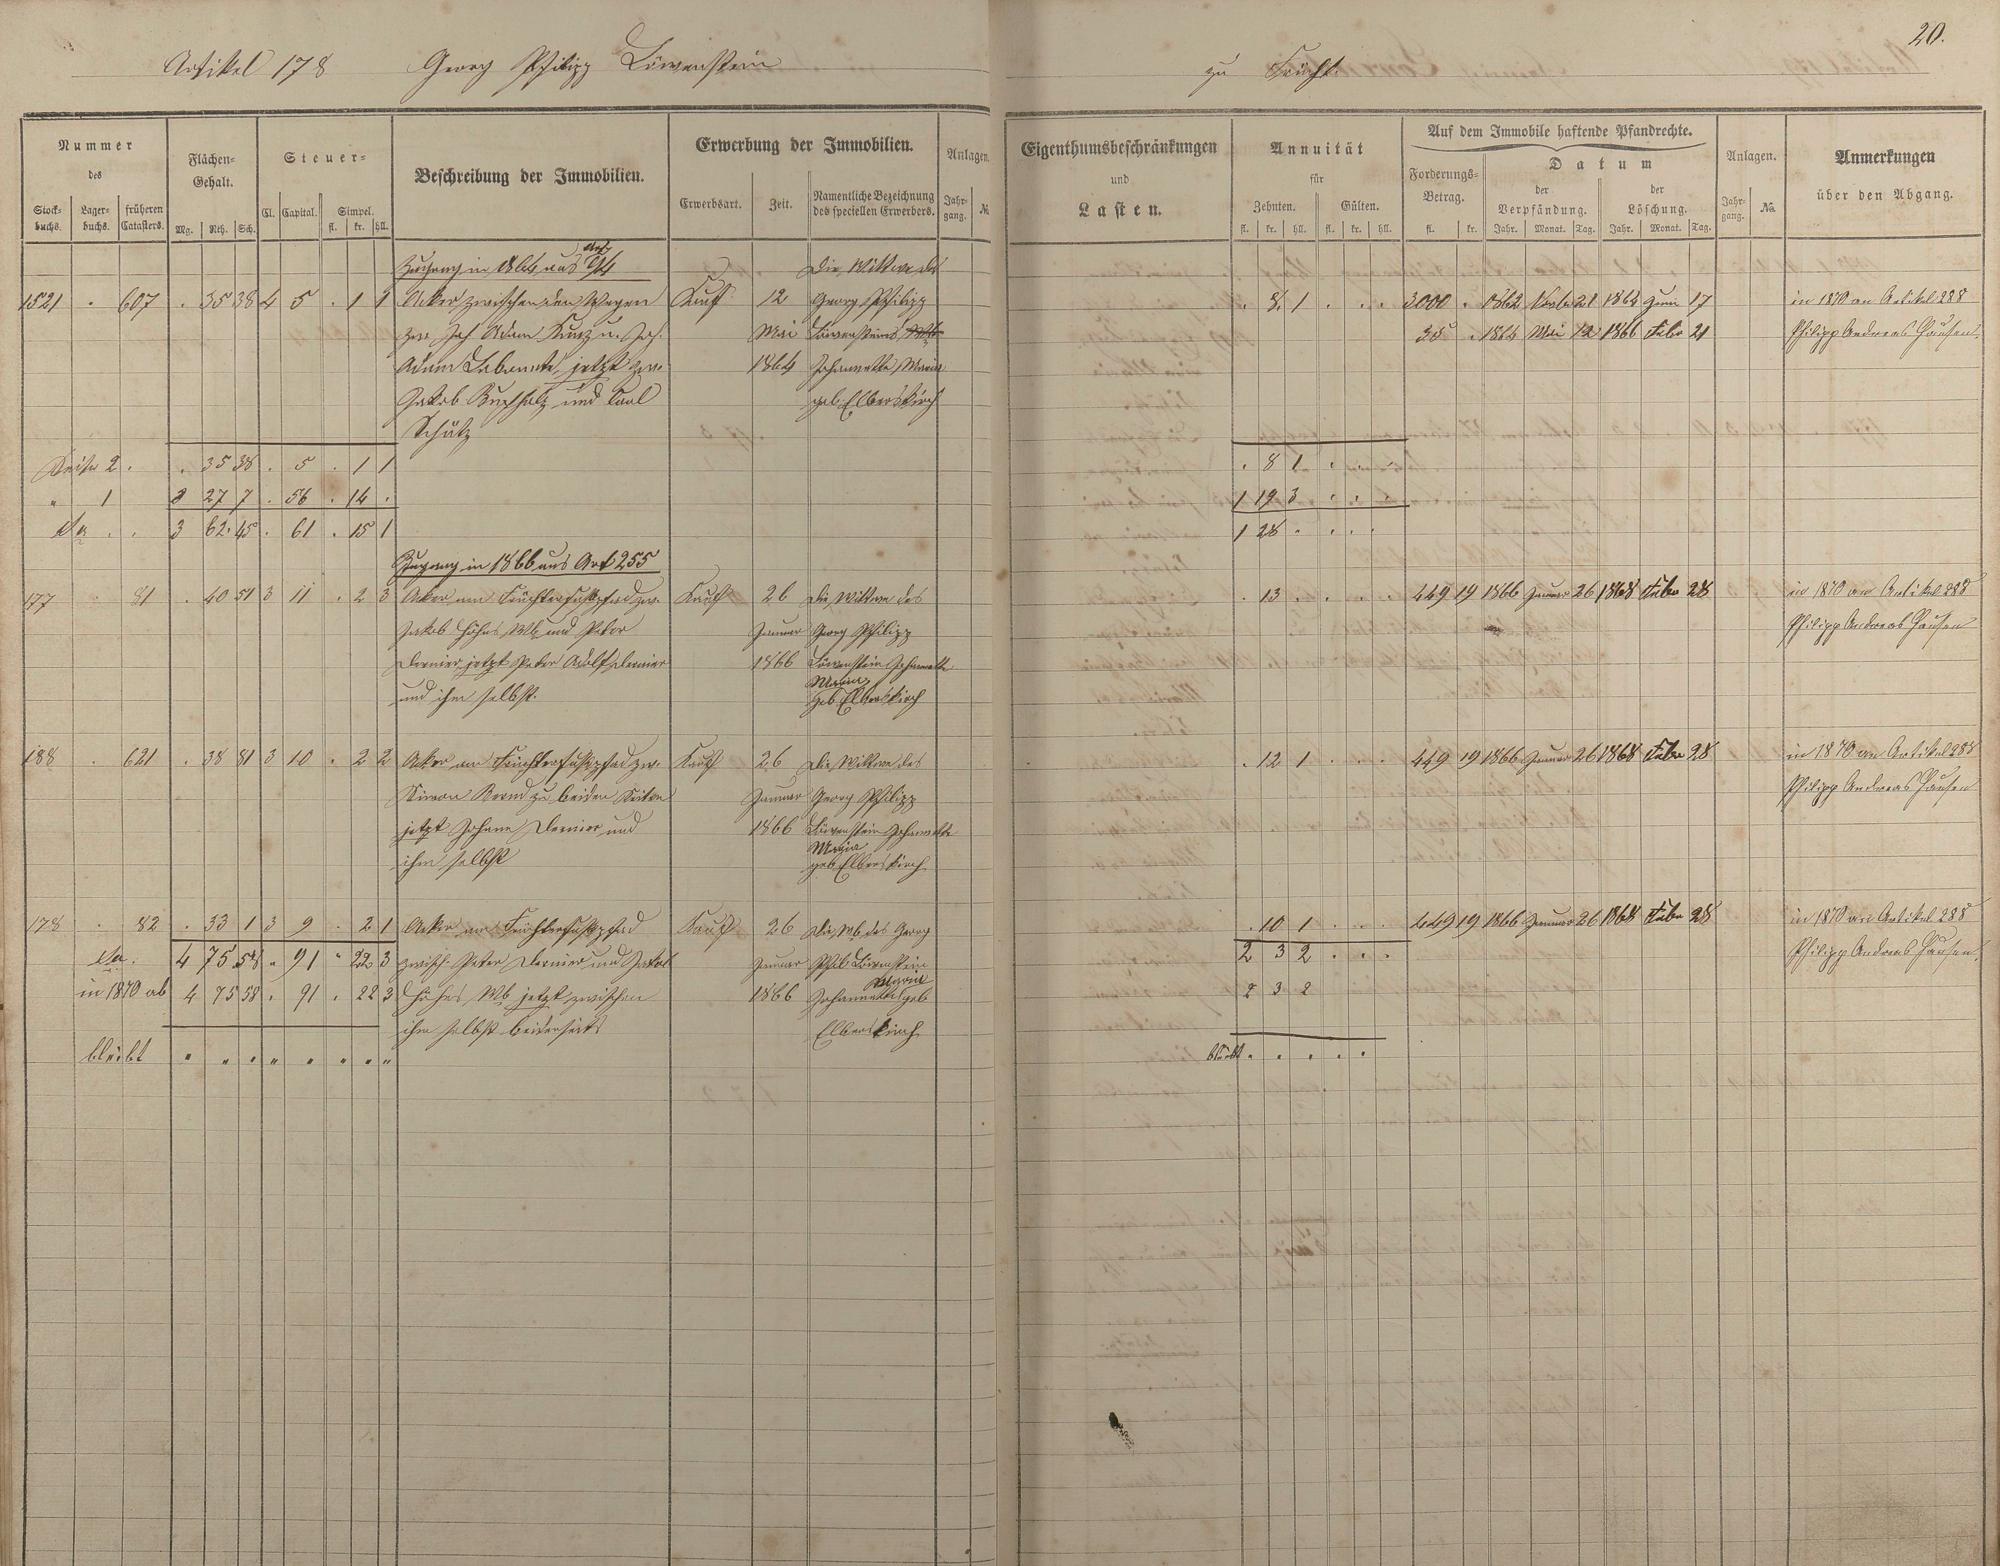 20.
Artikel 178 Georg Philipp Löwenstein zu Frücht.
Nummer des
Stockbuchs. Lagerbuchs. früheren Catasters.
Flächen-Gehalt.
Mg. Rth. Sch.
Steuer-
Cl. Capital. Simpel.
fl. kr. hll.
Beschreibung der Immobilien.
Erwerbung der Immobilien.
Erwerbsart. Zeit. Namentliche Bezeichnung des speciellen Erwerbers.
Anlagen.
Jahrgang. №
Eigenthumsbeschränkungen und Lasten.
Annuität für
Zehnten. Gülten.
fl. kr. hll. fl. kr. hll.
Auf dem Immobile haftende Pfandrechte.
Forderungs-Betrag. Datum
der Verpfändung. der Löschung.
fl. kr. Jahr. Monat. Tag. Jahr. Monat. Tag.
Anlagen.
Jahrgang. №.
Anmerkungen über den Abgang.
Zugang in 1864 aus Art 94 Die Wittwe des
1521 . 607 . 35 38 4 5 . 1 1 Acker zwischen den Wegen Kauf 12 Georg Philipp . 8 1 . . . 3000 . 1862 Novbr 21 1864 Juni 17 in 1870 an Artikel 288
zw. Joh Adam Kurz u. Joh. Mai Löwensteins 35 . 1864 Mai 12 1866 Febr 21 Philipp Andreas Hausen.
Adam jetzt zw. 1864 Johannette Maria
Jakob Buchholz und Carl geb. Elberskirch
Schütz
Seite 2 . . 35 38 . 5 . 1 1 . 8 1 . . .
" 1 3 27 7 . 56 . 14 . 1 19 3 . . .
Sa . . 3 62 45 . 61 . 15 1 1 28 . . . .
Zugang in 1866 aus Art 255
177 . 81 . 40 51 3 11 . 2 3 Acker am Früchterfußpfad zw. Kauf 26 Die Wittwe des . 13 . . . . 449 19 1866 Januar 26 1868 Febr 28 in 1870 an Artikel 288
Jakob Höhns Wb und Peter Januar Georg Philipp Philipp Andreas Hausen
Dernier jetzt Peter Adolf Dernier 1866 Löwenstein Johannette
und ihm selbst. Maria
geb Elberskirch
188 . 621 . 38 81 3 10 . 2 2 Acker am Früchterfußpfad zw. Kauf 26 Die Wittwe des . 12 1 . . . 449 19 1866 Januar 26 1868 Febr 28 in 1870 an Artikel 288
Simon zu beiden Seiten Januar Georg Philipp Philipp Andreas Hausen
jetzt Johann Dernier und 1866 Löwenstein Johannette
ihm selbst Maria
geb Elberskirch
178 . 82 . 33 1 3 9 . 2 1 Acker am Früchterfußpfad Kauf 26 Die Wb des Georg . 10 1 . . . 449 19 1866 Januar 26 1868 Febr 28 in 1870 an Artikel 288
Sa. 4 75 58 " 91 " 22 3 zwisch Peter Dernier und Jakob Januar Phil Löwenstein 2 3 2 . . . Philipp Andreas Hausen.
in 1870 ab 4 75 58 . 91 . 22 3 Höhns Wb jetzt zwischen 1866 Johannette Marie geb 2 3 2
ihm selbst beiderseits Elberskirch
bleibt " " " " " " " " bleibt . . . . . .